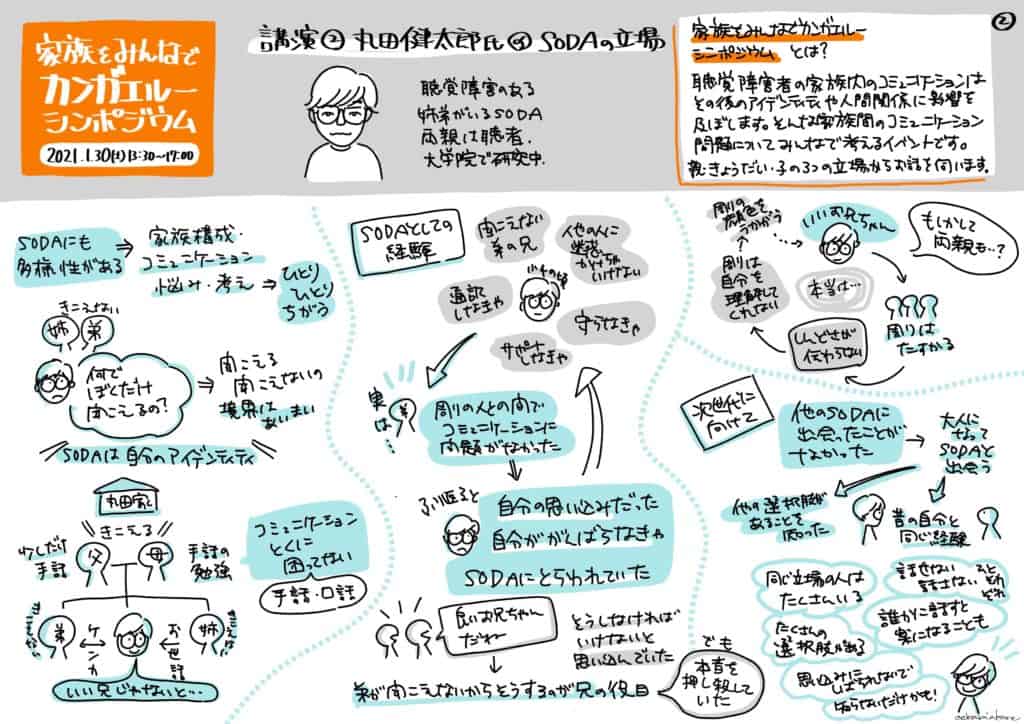 家族をみんなで
カンガエルー
シンポジウム
2021.1.30(土)13:30〜17:00
講演② 丸田健太郎氏 SODAの立場
聴覚障害のある
姉弟がいるSODA
両親は聴者.
大学院で研究中.
②
家族をみんなでカンガエルー
シンポジウム とは?
聴覚障害者の家族内のコミュニケーションは
その後のアイデンティティや人間関係に影響を
及ぼします。そんな家族間のコミュニケーション
問題についてみんなで考えるイベントです。
親・きょうだい・子の3つの立場からお話を伺います。
SODAにも
多様性がある
家族構成・
コミュニケーション
悩み・考え
ひとり
ひとり
ちがう
きこえない
姉 弟
何で
ぼくだけ
聞こえるの?
聞こえる
聞こえないの
境界は
あいまい
SODAは自分のアイデンティティ
丸田家
きこえる
少しだけ
手話
父
母
手話の
勉強
コミュニケーション
とくに
困ってない
手話・口話
きこえない
弟
ケンカ
お世話
姉
きこえない
いい兄じゃないと…
SODAとしての
経験
聞こえない
弟の兄
他の人に
迷惑
かけちゃ
いけない
小4の頃
通訳
しなきゃ
守らなきゃ
サポート
しなきゃ
実は…
弟
周りの人との間で
コミュニケーションに
問題がなかった
ふり返ると
自分の思い込みだった
自分ががんばらなきゃ
SODAにとらわれていた
良いお兄ちゃん
だね
どうしなければ
いけないと
思い込んでいた
弟が聞こえないからそうするのが兄の役目
でも
本音を
押し殺して
いた
周りの
顔色を
うかがう
いいお兄ちゃん
もしかして
両親も…?
周りは
自分を
理解して
くれない
本当は…
しんどさが
伝わらない
周りは
たすかる
次世代に
向けて
他のSODAに
出会ったことが
なかった
大人に
なって
SODAと
出会う
他の選択肢が
あることを
知った
昔の自分と
同じ経験
同じ立場の人は
たくさんいる
話せない
話さない
それぞれ
たくさんの
選択肢がある
誰かに話すと
楽になることも
思い込みに
しばられないで
知らないだけかも!